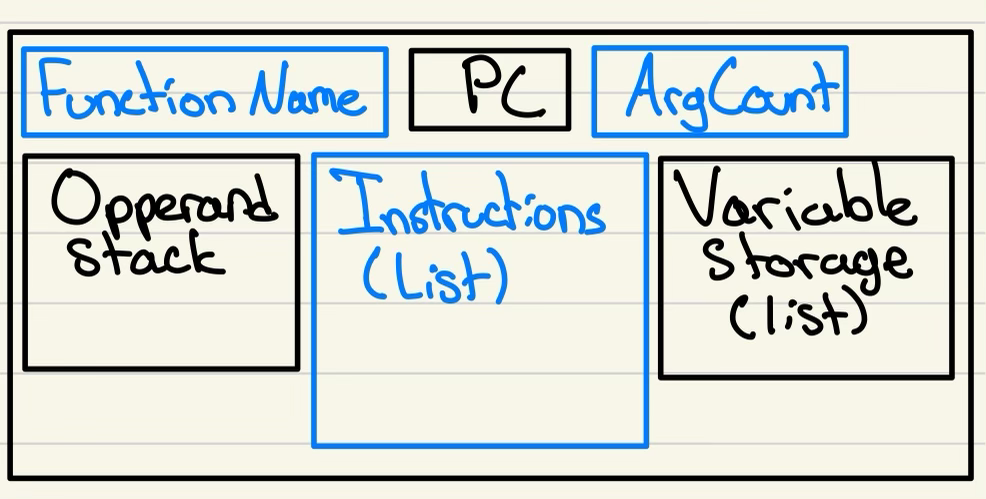 Function Name
PC
ArgCount
Opperand
Stack
Instructions
(List)
Variable
Storage
(list)